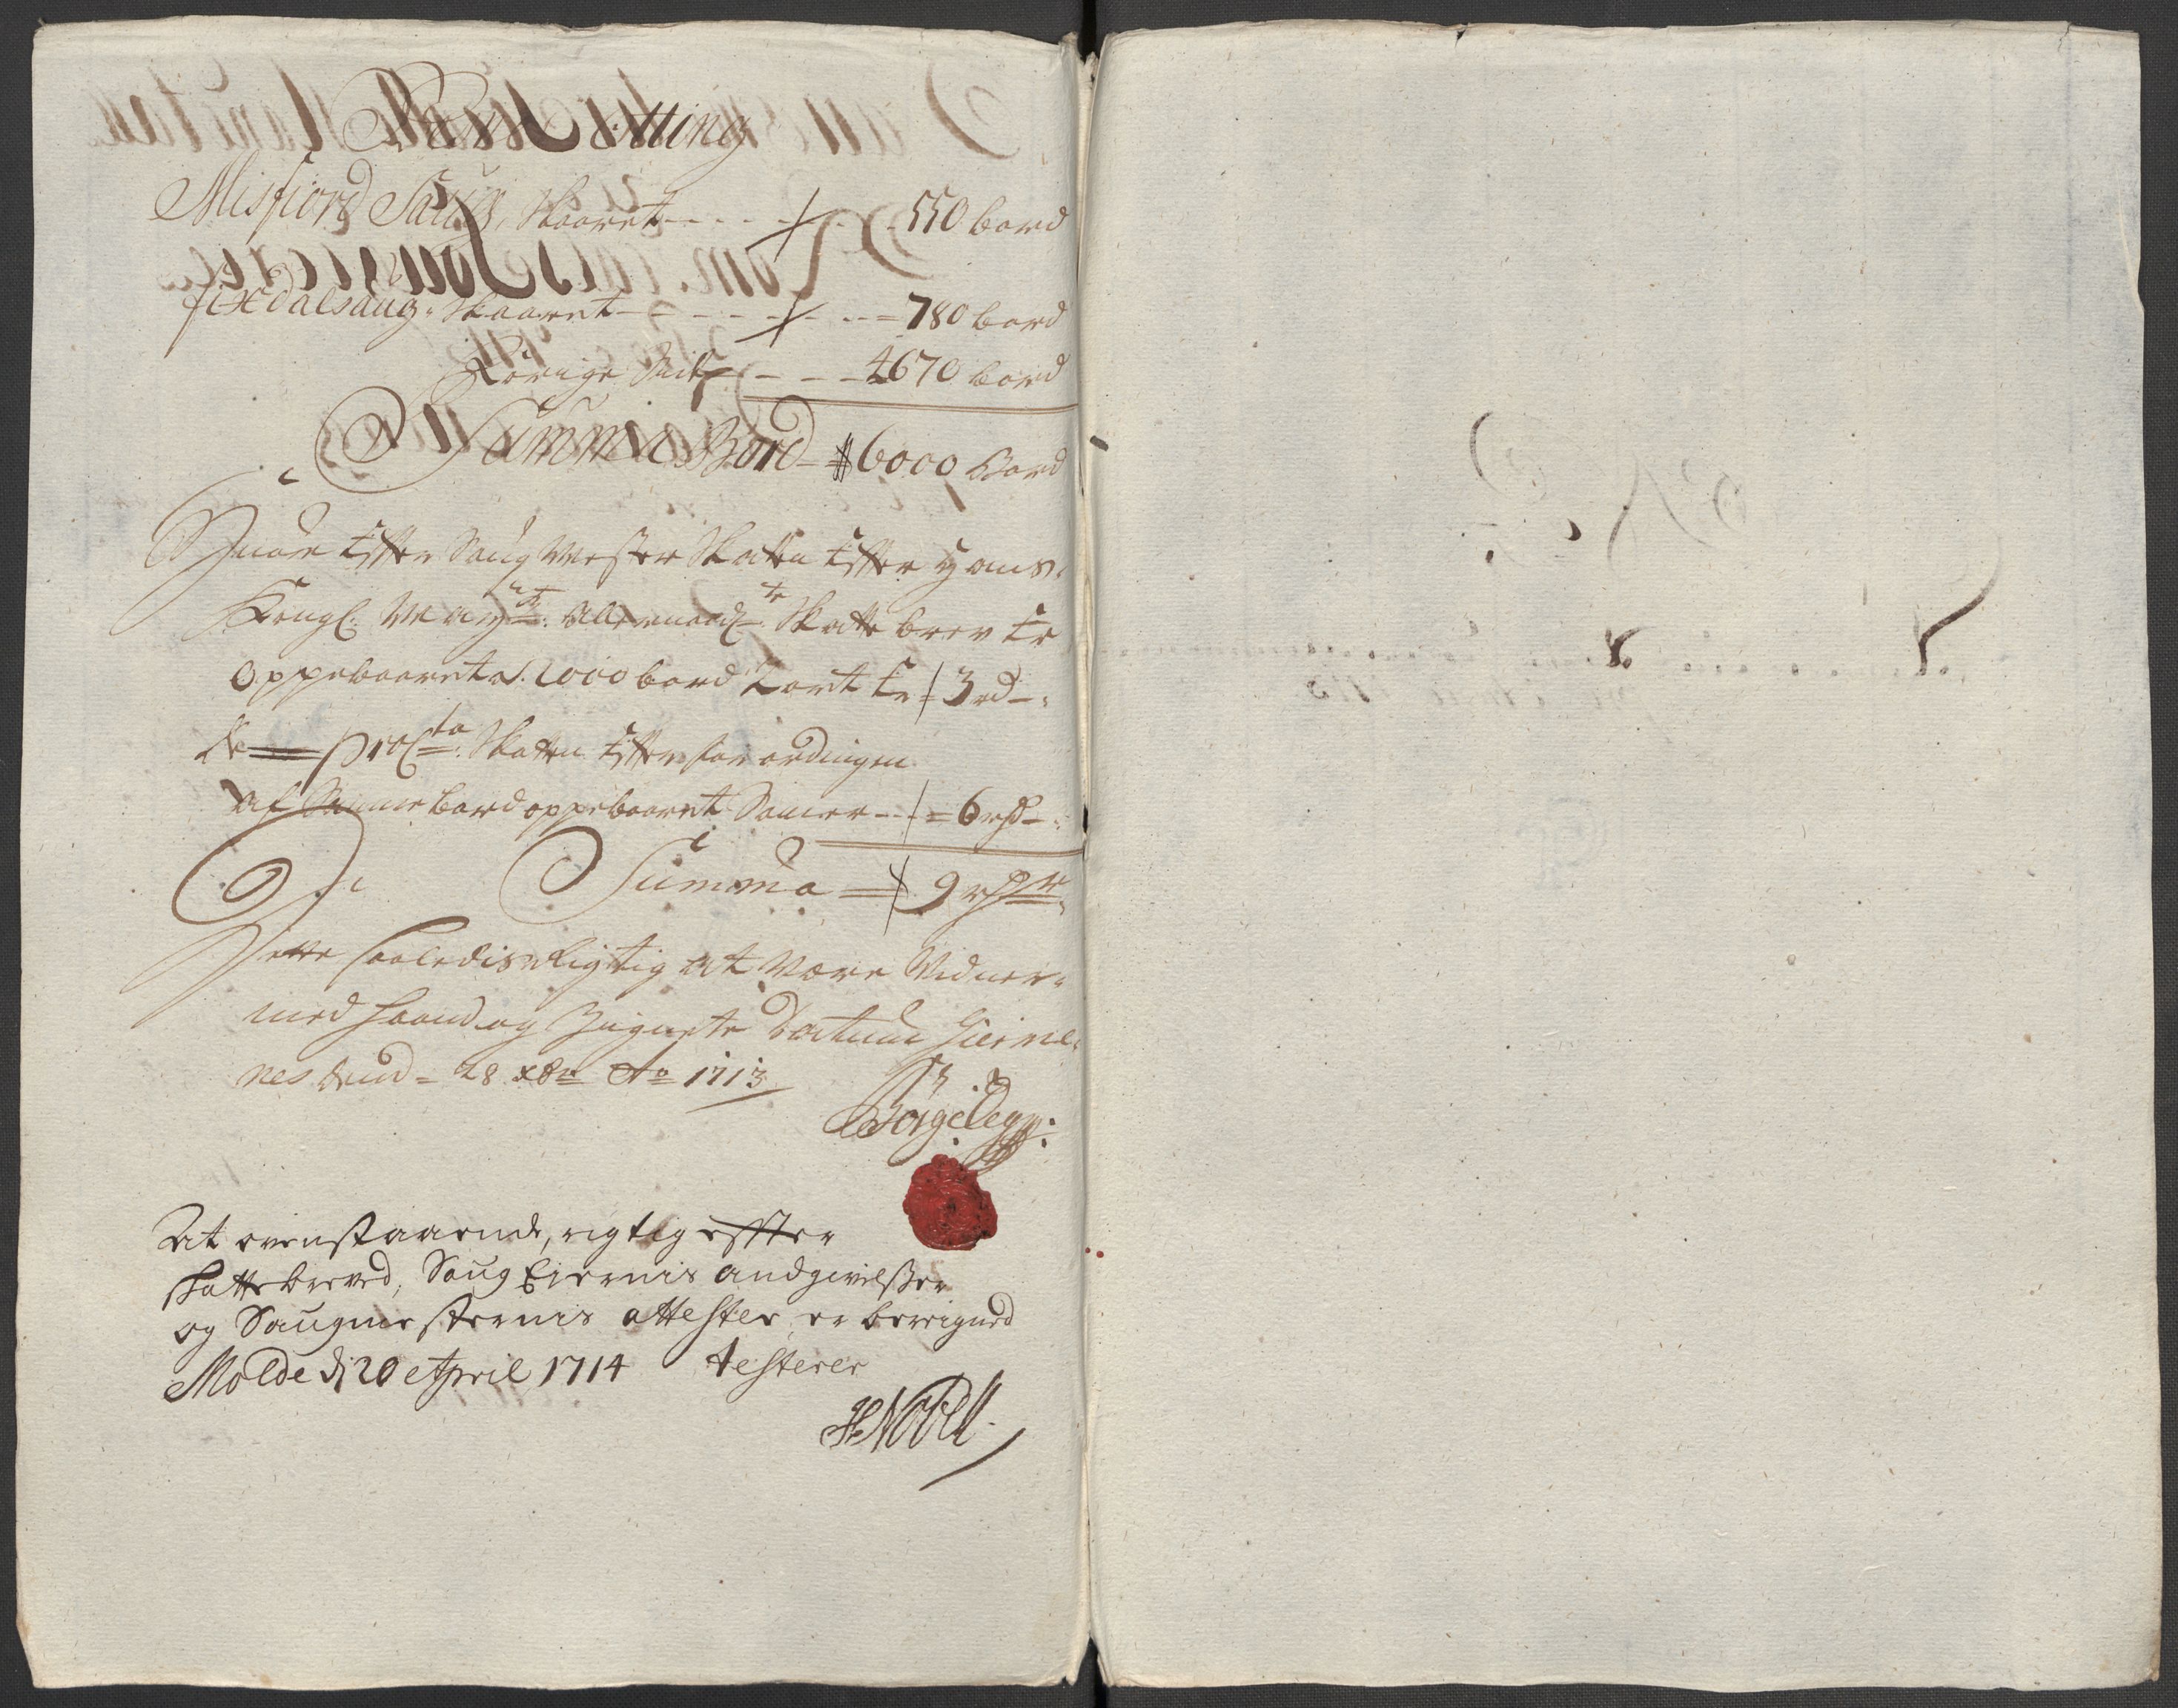 Otting
Misfiord Saug, Skaaret - - - - 550 bord
fixdalsaug: Skaaret - - - - 780 bord
Forige Sid - - - 4670 bord
Summa Bord - 6000 Bord
effter Saug Mester Skatten effter Hans
Kongl: Mayts: Allernaadgte Skatte brev er
Oppebaaret af 1000 bord er 3 rd -
De procto: Skatten effter forordingen
af Samme bord oppebaaret Som er - - 6 rd -
Summa 9 rdr
Dette saaledis Rigtig at være Vidner
med haand og Zignete Datum Gierme-
nes Sund - 28 xbr Ao 1713
Børge
At ovenstaaende, rigtig effter
skattebreved, Saug Eiernis andgivelsser
og Saugmesternis attester er beregned
Molde d 20 April 1714 testerer
HNobell